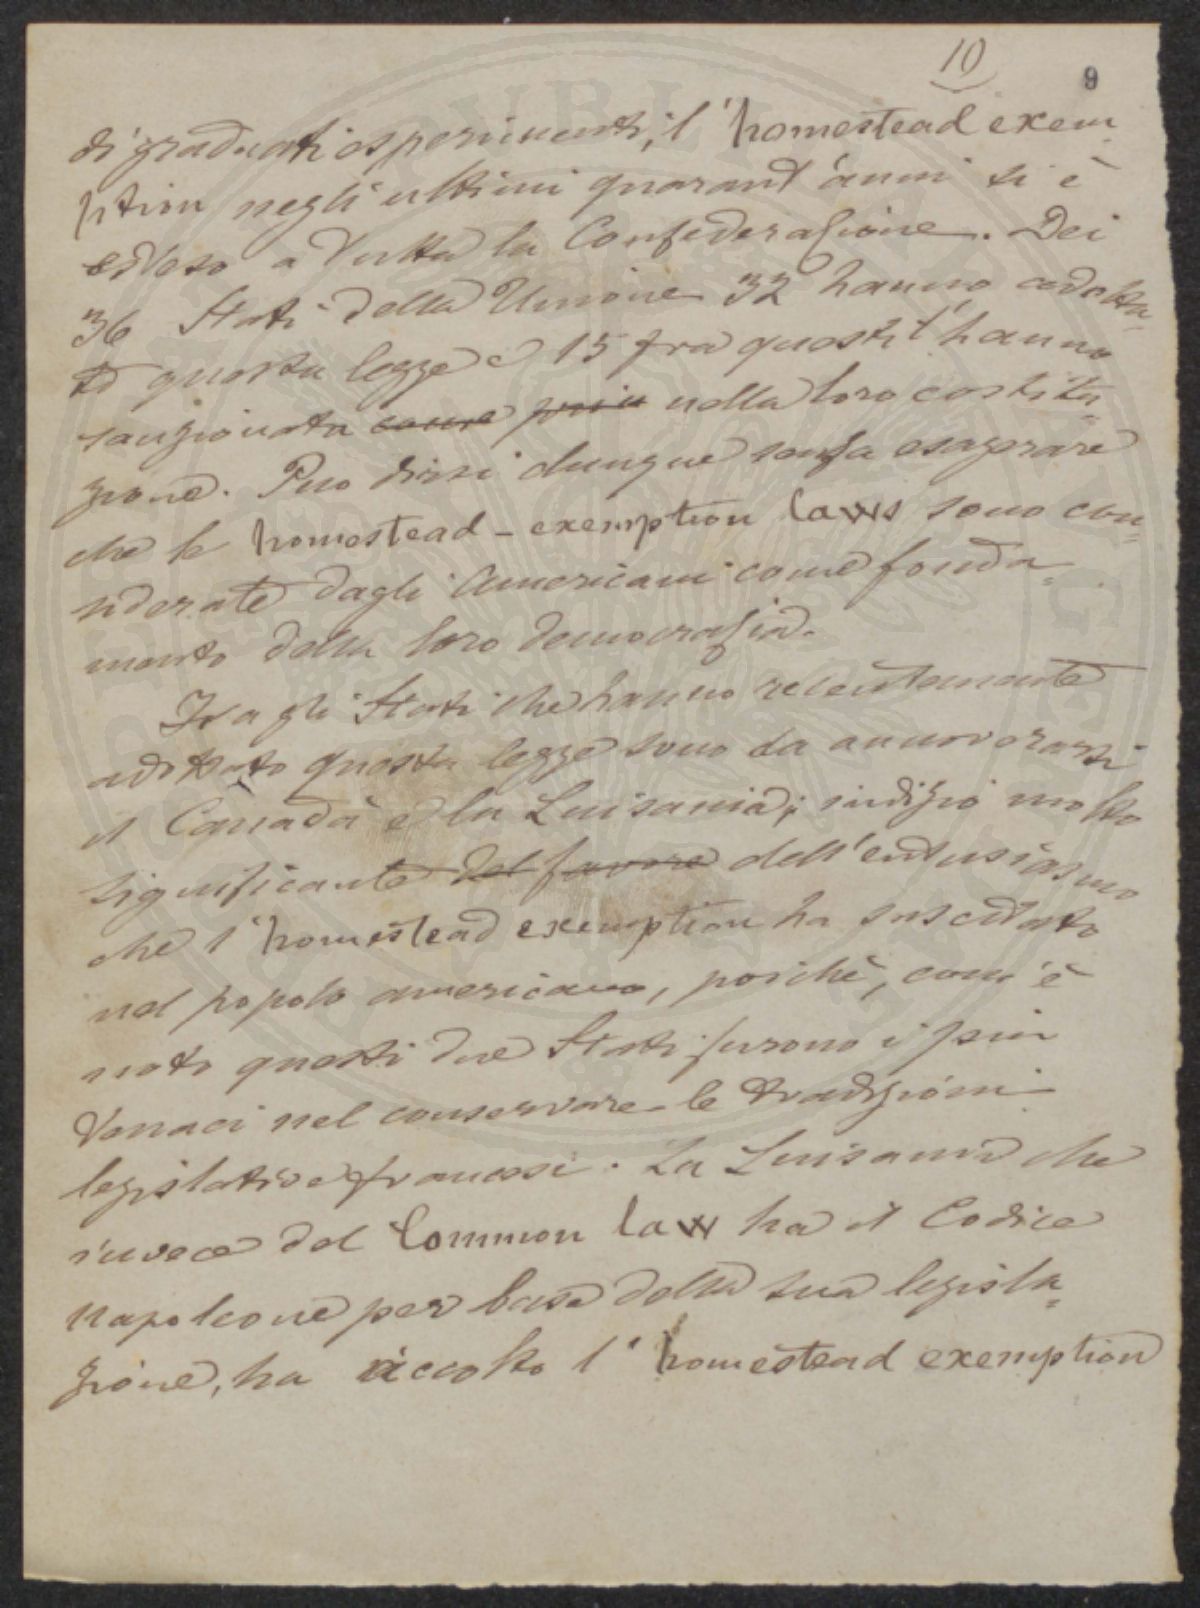 10
9
di graduati esperimenti, l'homestead exem
ption negli ultimi quarant'anni si è
esteso a tutta la Confederazione. Dei
36 Stati della Unione 32 hanno adotta=
to questa legge e 15 fra questi l'hanno
sanzionata come nella loro costitu=
zione. Puo dirsi dunque senza esagerare
che le homestead-exemption laws sono con=
siderate dagli Americani come fonda=
mento della loro democrazia.
Fra gli Stati che hanno recentemente
adottato questa legge sono da annoverarsi
il Canadà e la Luisania; indizio molto
significante del favore dell'entusiasmo
che l'homestead exemption ha suscitato
nel popolo americano, poichè, com'è
noto questi due Stati furono i piu
tenaci nel conservare le tradizioni
legislative francesi. La Luisania che
invece del Common law ha il Codice
Napoleone per base della sua legisla=
zione, ha accolto l'homestead exemption